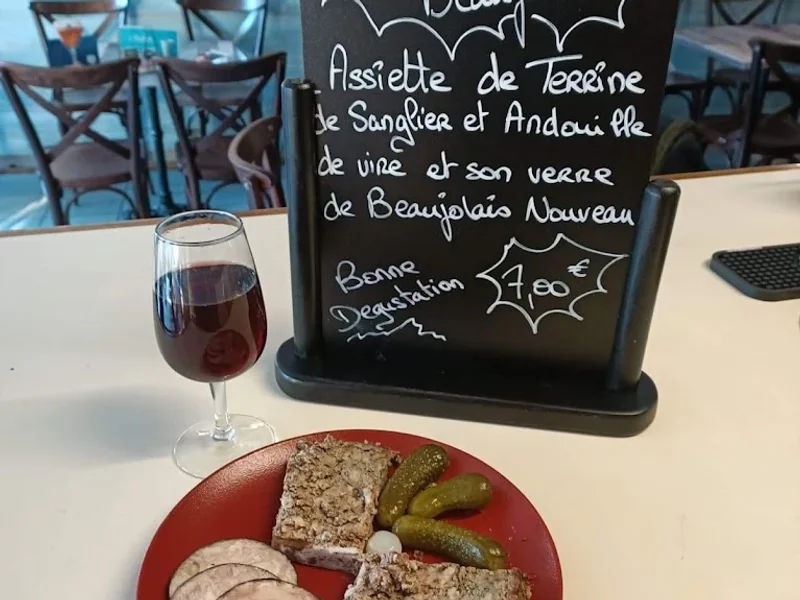 Assiette de Terrine
de Sanglier et Andouille
de vire et son verre
de Beaujolais Nouveau
Bonne
Degustation
7,00€